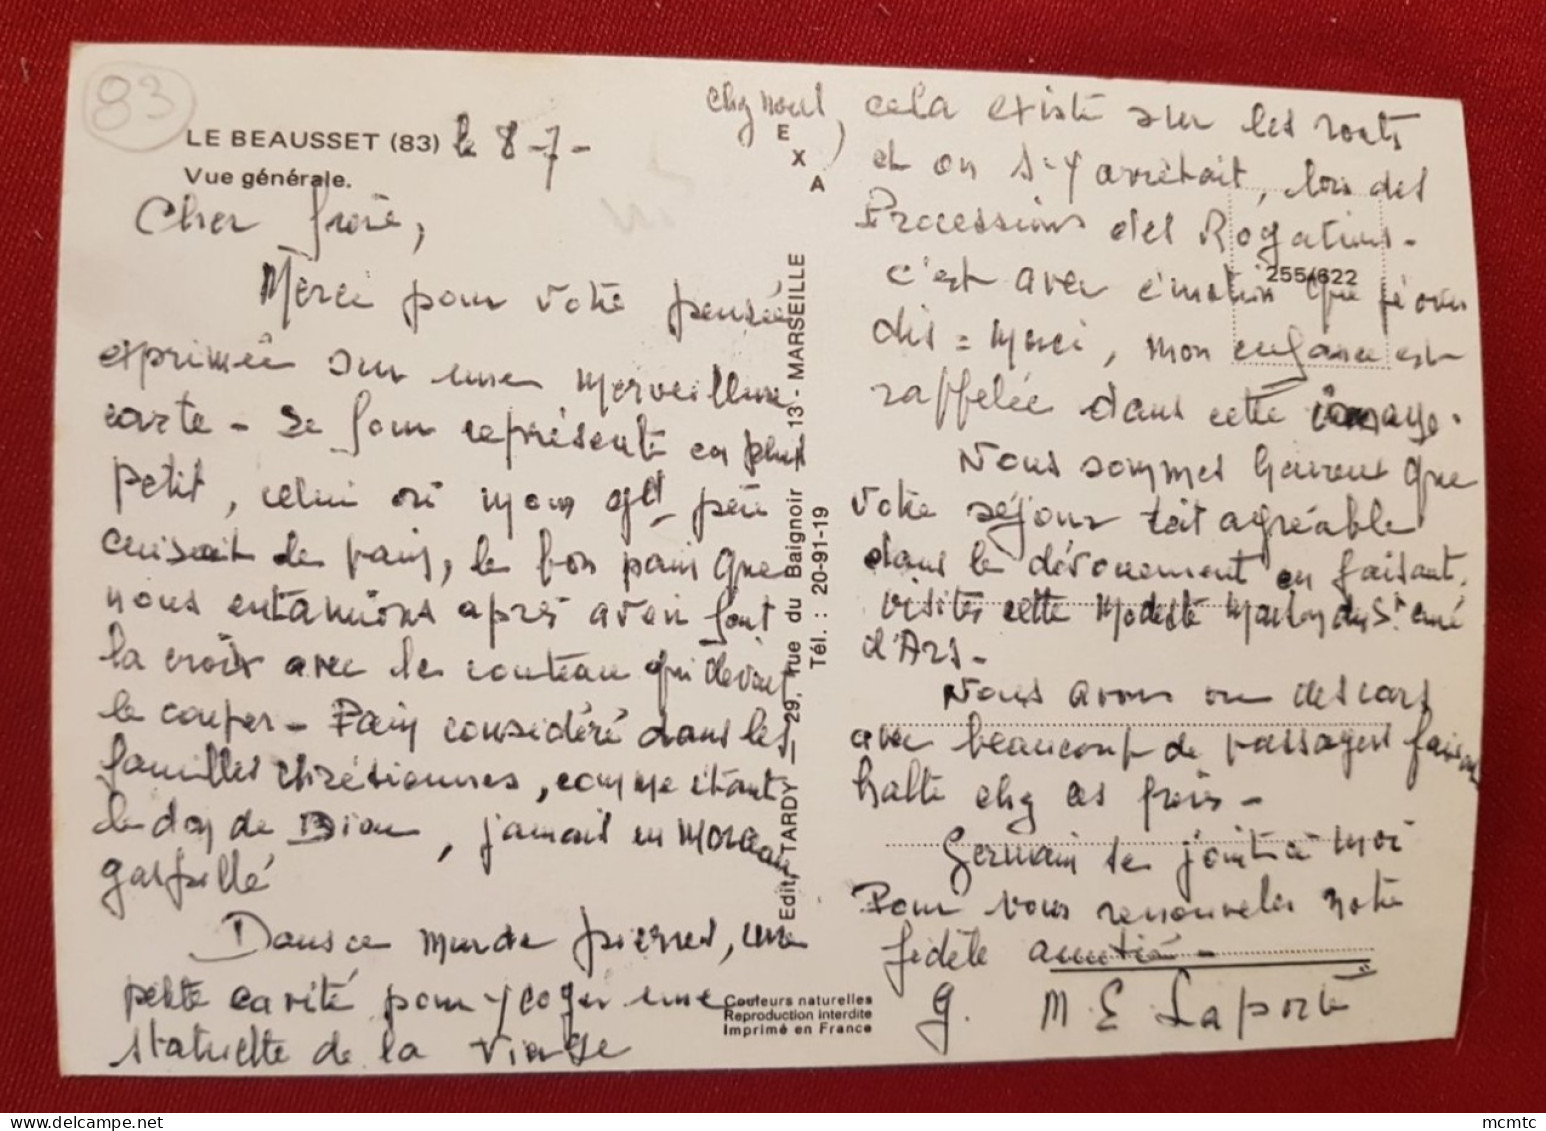 83
LE BEAUSSET (83) le 8-7-
Vue générale.
Cher frère,
Merci pour votre pensée
exprimée sur une merveilleuse
carte - Le four représenté en plus
petit, celui où mon gd père
cuisait le pain, le bon pain que
nous entamions après avoir fait
la croix avec le couteau qui devait
le couper - Pain considéré dans les
familles chrétiennes, comme étant
le don de Dieu, jamais un morceau
gaspillé
Dans ce mur de pierres, une
petite cavité pour y loger une
statuette de la Vierge
EXA
Edit. TARDY - 29, rue du Baignoir 13 - MARSEILLE
Tél. : 20-91-19
Couleurs naturelles
Reproduction interdite
Imprimé en France
255/622
chez nous, cela existe sur les routes
et on s'y arrêtait, lors des
Processions des Rogations -
c'est avec émotion que je vous
dis = Merci, mon enfance est
rappelée dans cette image.
Nous sommes heureux que
votre séjour soit agréable
dans le dévouement en faisant
visiter cette modeste maison du St curé
d'Ars -
Nous avons vu des cars
avec beaucoup de passagers faisant
halte chez ces frères -
Germain se joint à moi
Pour vous renouveler notre
fidèle amitié -
G. M E Laporte
mcmtc